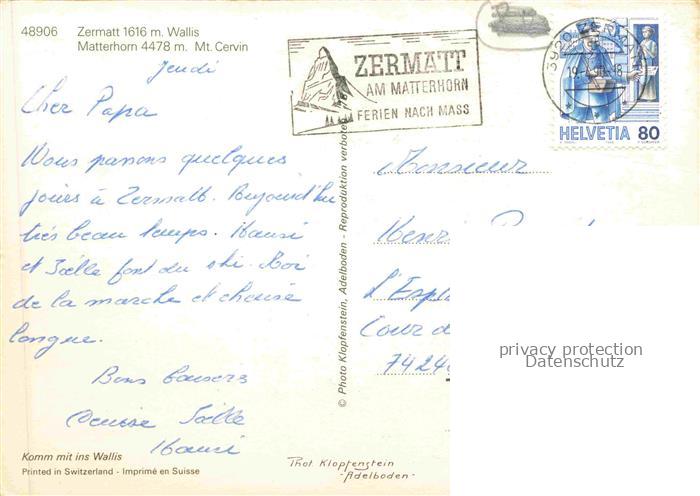 48906 Zermatt 1616 m. Wallis
Matterhorn 4478 m. Mt. Cervin
jeudi
Cher Papa
Nous passons quelques
jours à Zermatt. Aujourd'hui
très beau temps. Hansi
et Joëlle font du ski. Moi
de la marche et chaise
longue.
Bons baisers
Denise Joëlle
Hansi
Komm mit ins Wallis
Printed in Switzerland - Imprimé en Suisse
© Photo Klopfenstein, Adelboden - Reproduktion verboten
Phot Klopfenstein
-Adelboden-
ZERMATT
AM MATTERHORN
FERIEN NACH MASS
3920 ZERMATT
HELVETIA 80
Monsieur
Henri
L'Espl
Cour d
7424
privacy protection
Datenschutz